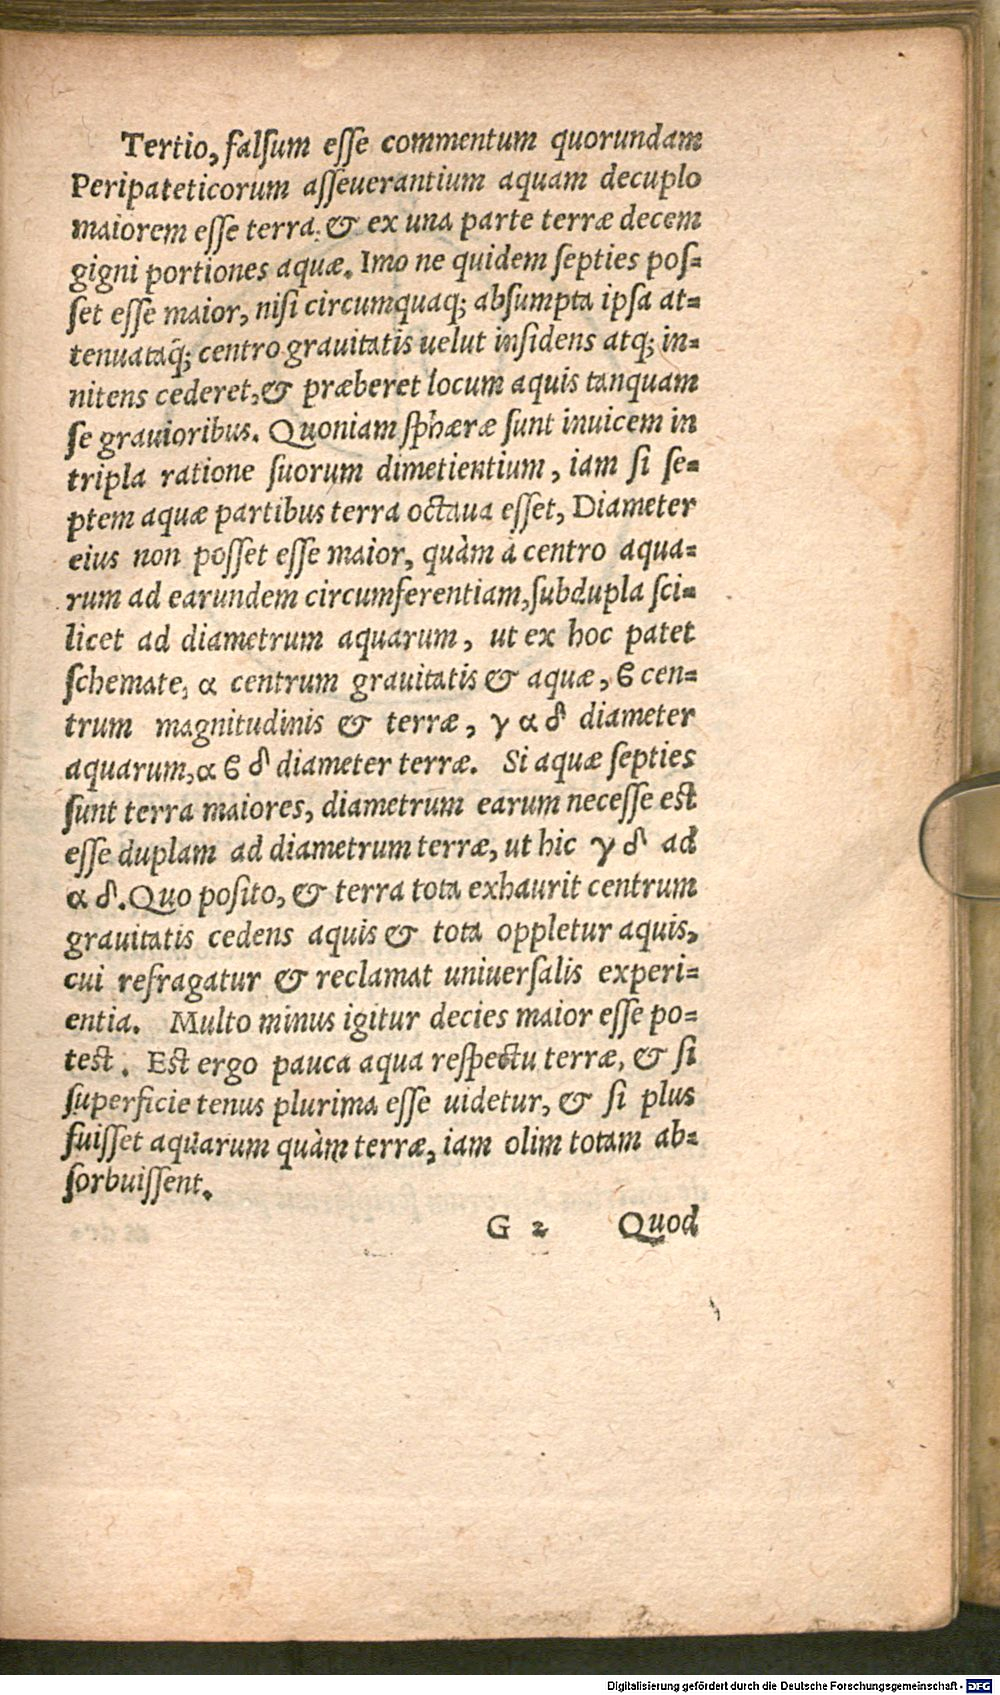 Tertio, falsum esse commentum quorundam
Peripateticorum asseuerantium aquam decuplo
maiorem esse terra. & ex una parte terræ decem
gigni portiones aquæ. Imo ne quidem septies pos-
set esse maior, nisi circumquaq; absumpta ipsa at-
tenuataq̃; centro grauitatis uelut insidens atq; in-
nitens cederet, & præberet locum aquis tanquam
se grauioribus. Quoniam sphæræ sunt inuicem in
tripla ratione suorum dimetientium, iam si se-
ptem aquæ partibus terra octaua esset, Diameter
eius non posset esse maior, quàm à centro aqua-
rum ad earundem circumferentiam, subdupla sci-
licet ad diametrum aquarum, ut ex hoc patet
schemate, α centrum grauitatis & aquæ, ϐ cen-
trum magnitudinis & terræ, γ α δ diameter
aquarum, α ϐ δ diameter terræ. Si aquæ septies
sunt terra maiores, diametrum earum necesse est
esse duplam ad diametrum terræ, ut hic γ δ ad
α δ. Quo posito, & terra tota exhaurit centrum
grauitatis cedens aquis & tota oppletur aquis,
cui refragatur & reclamat uniuersalis experi-
entia. Multo minus igitur decies maior esse po-
test. Est ergo pauca aqua respectu terræ, & si
superficie tenus plurima esse uidetur, & si plus
fuisset aquarum quàm terræ, iam olim totam ab-
sorbuissent.
G 2 Quod
Digitalisierung gefördert durch die Deutsche Forschungsgemeinschaft - DFG